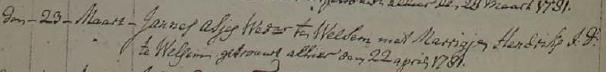 getrouwt alhier den 28 maart 1781.
den - 23 - Maart - Jannes Asjes Wever te Welsem met Marrigje Hendriks J: D:
te Welsem getrouwt alhier den 22 april 1781.